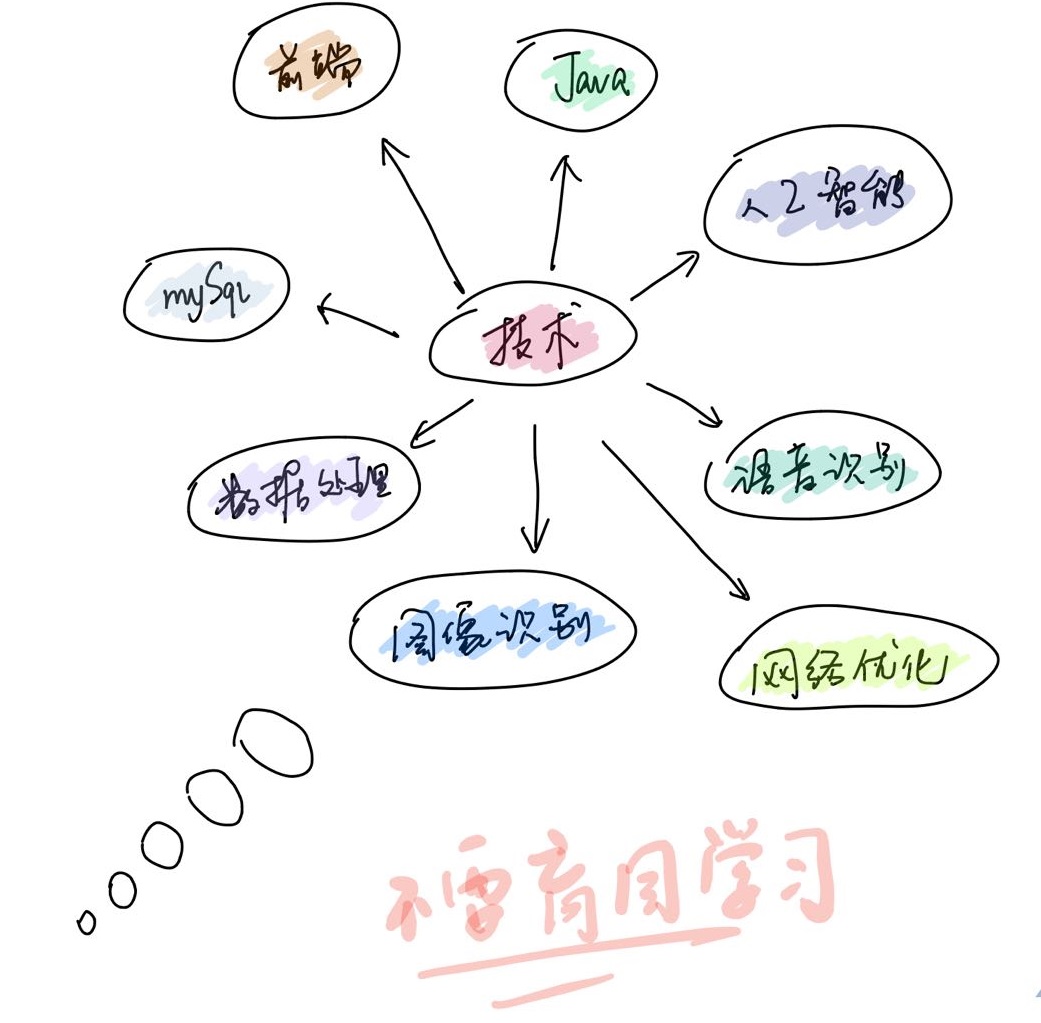 前端
Java
人工智能
mySql
技术
数据处理
语音识别
图像识别
网络优化
不需盲目学习